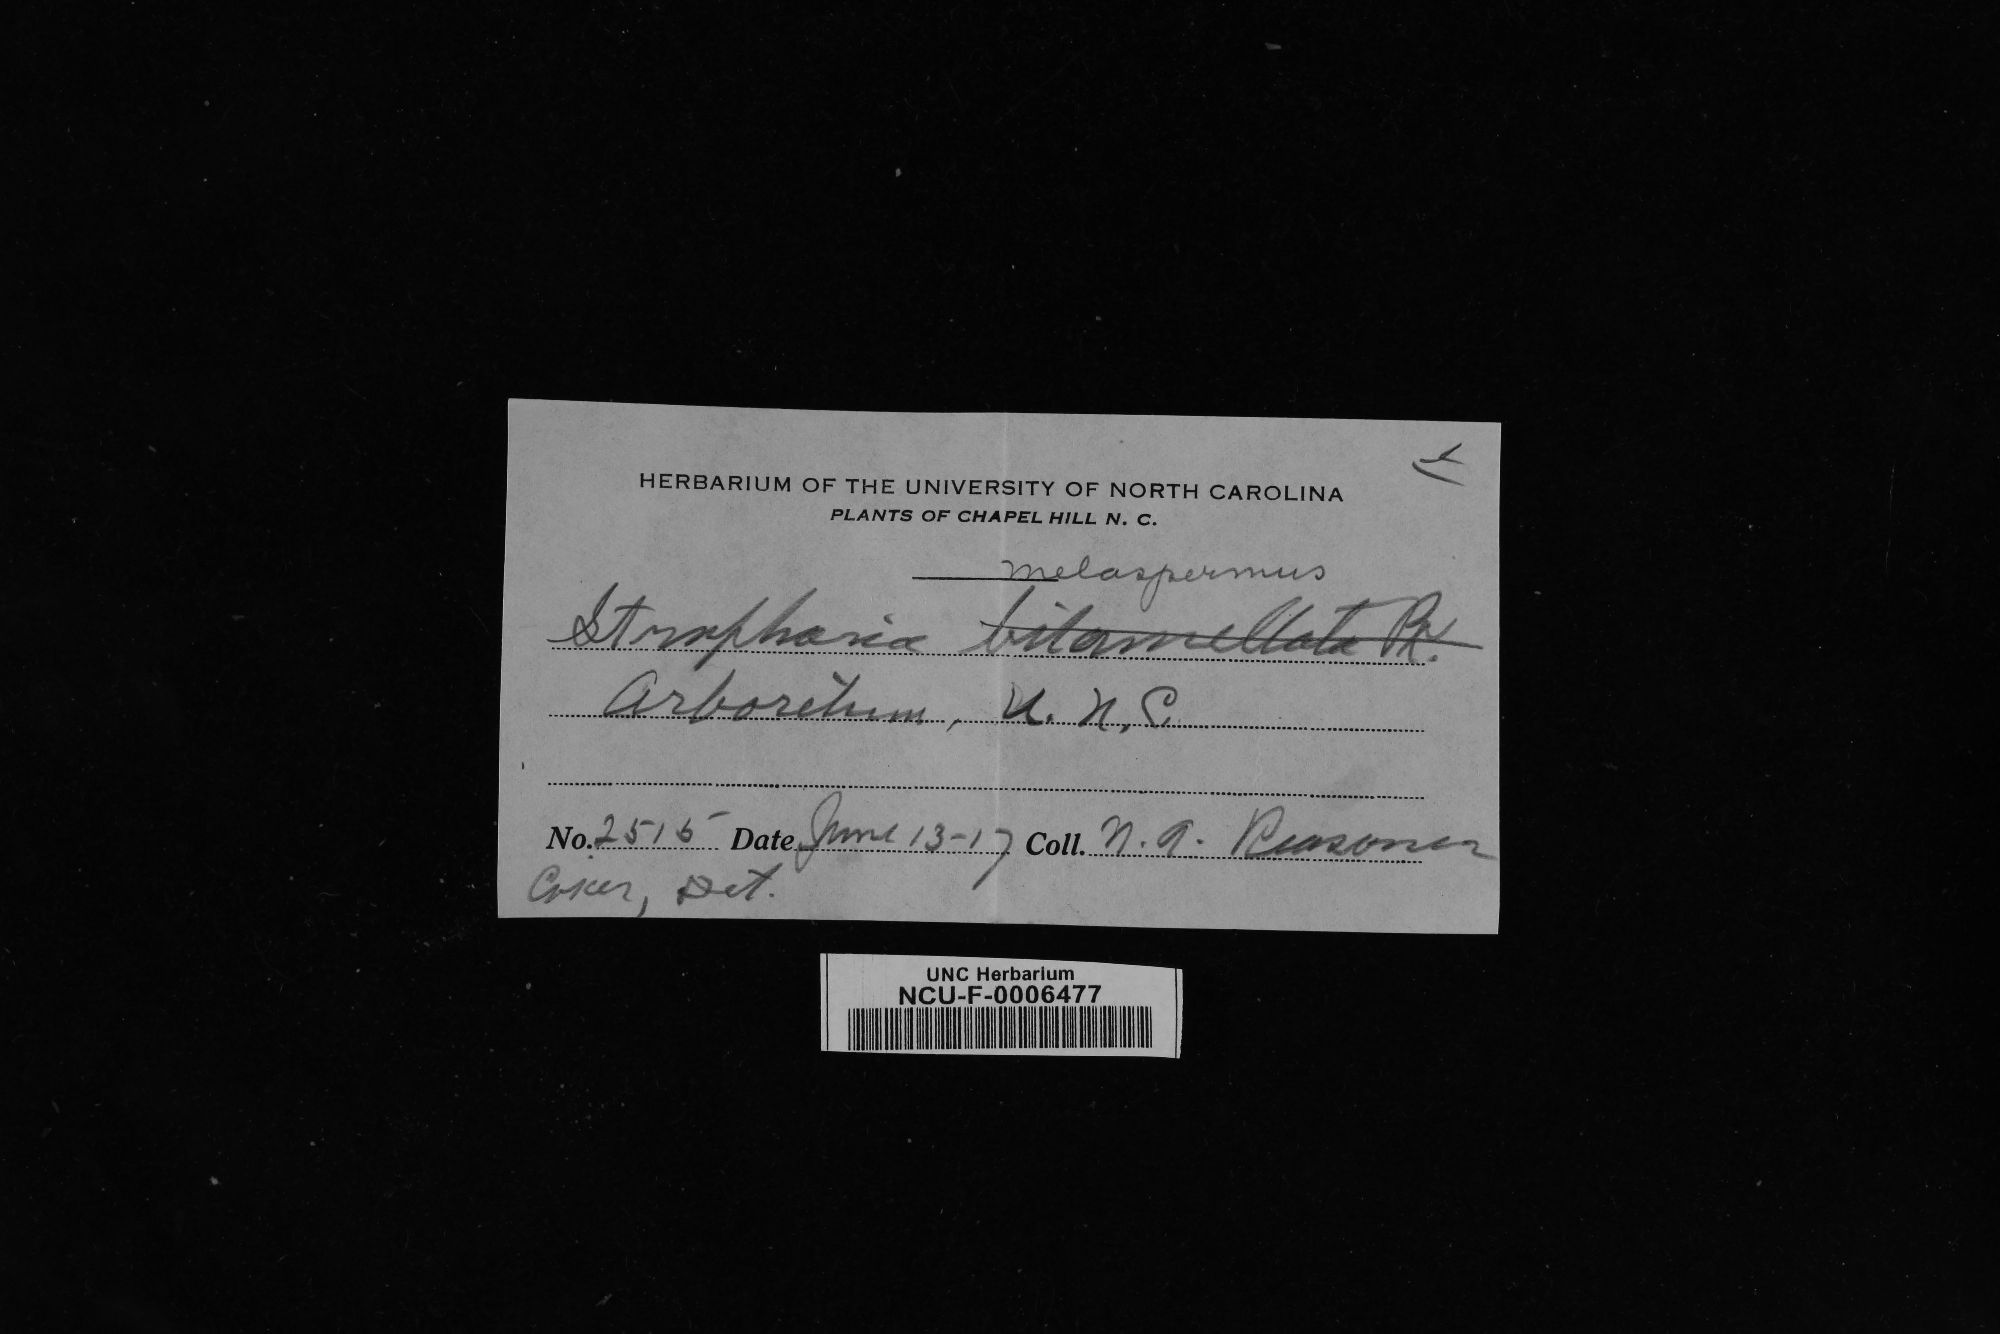 HERBARIUM OF THE UNIVERSITY OF NORTH CAROLINA
PLANTS OF CHAPEL HILL N. C.
melaspermus
Stropharia bilamellata Pk.
Arboretum, U. N. C.
No. 2515 Date June 13-17 Coll. N. A. Reasoner
Coker, Det.
UNC Herbarium
NCU-F-0006477